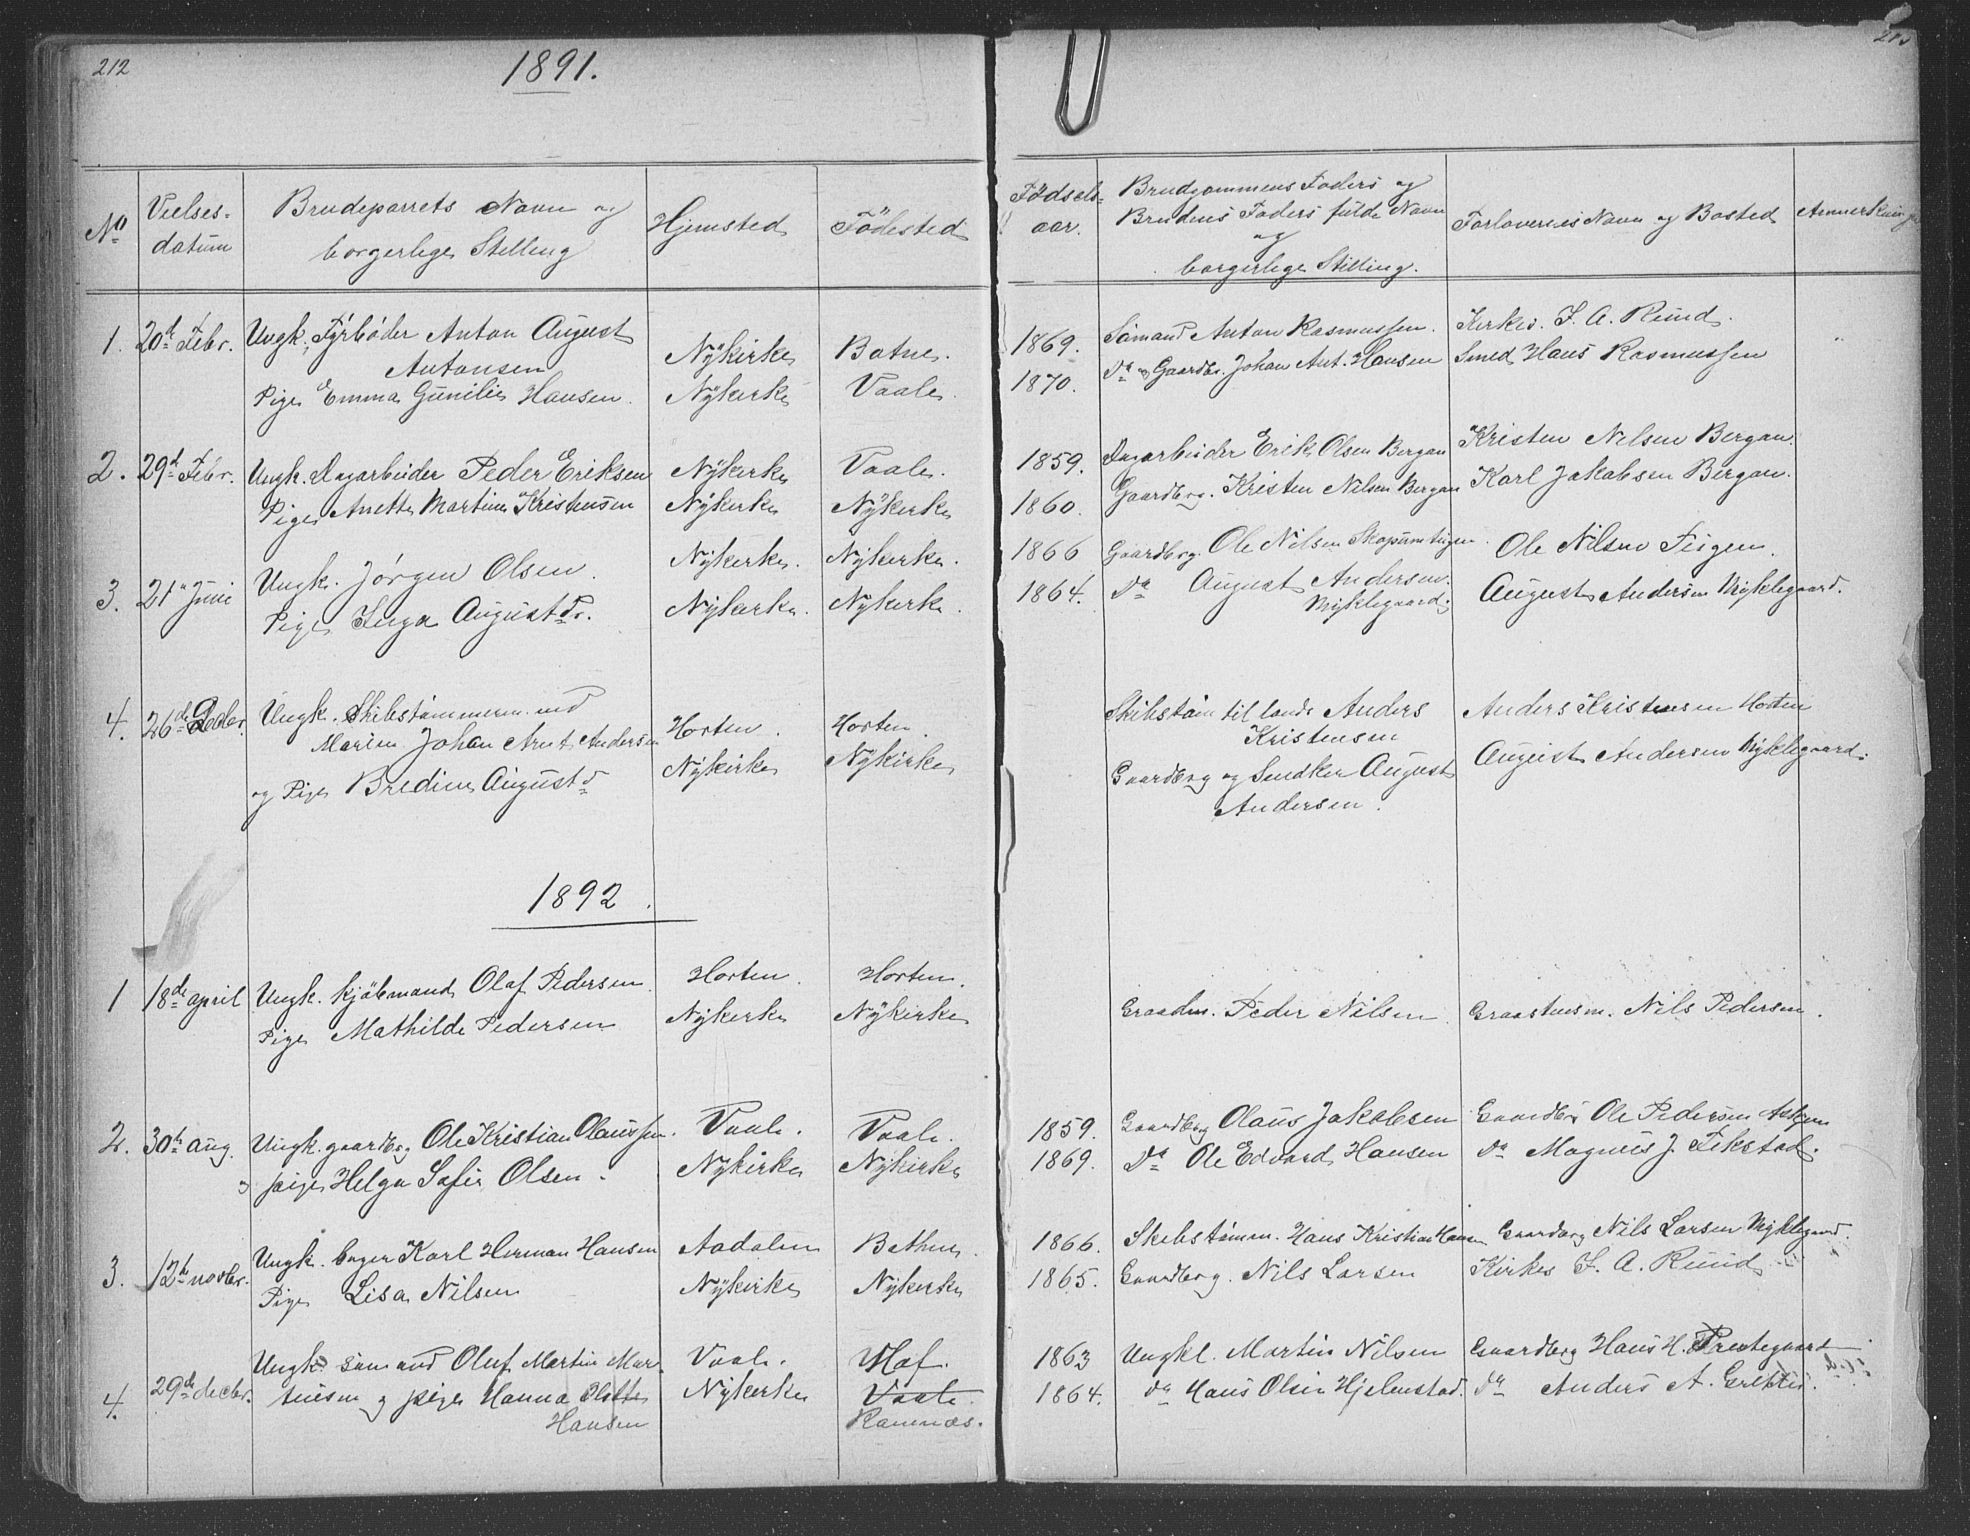 212
1891.
No
Vielses-
datum
Brudeparrets Navn og
borgerlige Stilling
Hjemsted
Fødested
Fødsels-
aar.
Brudgommens Faders og
Brudens Faders fulde Navn
og
borgerlige Stilling.
Forlovernes Navn og Bosted
1. 20de Febr. Ungk. Fyrbøder Anton August
Antonsen Nykirke Botne. 1869. Sømand Anton Rasmussen. Kirkes. F. A. Ruud.
Pige Emma Gunilie Hansen. Nykirke Vaale. 1870. Do og Gaardbr. Johan Ant. Hansen Smed Hans Rasmussen
2. 29de Febr. Ungk. Dagarbeider Peder Eriksen Nykirke Vaale. 1859. Dagarbeider Erik Olsen Bergan Kristen Nilsen Bergan.
Pige Anette Martine Kristensen Nykirke Nykirke 1860. Gaardbrg. Kristen Nilsen Bergan Karl Jakobsen Bergan.
3. 21de Juni Ungk. Jørgen Olsen. Nykirke. Nykirke. 1866 Gaardbrg. Ole Nilsen Ole Nilsen
Pige Inga Augustdr. Nykirke. Nykirke. 1864. Do August Andersen. August Andersen Myklegaard.
Myklegaard.
4. 26de Decbr. Ungk. Skibstømmermand
Marius Johan Arnt Andersen Horten. Horten. Skibstøm til lands Anders Anders Kristensen Horten
Kristensen
og Pige Bredine Augustd Nykirke Nykirke Gaardbrg og Snedker August August Andersen Myklegaard.
Andersen.
1892.
1 18de april Ungk. kjøbmand Olaf Pedersen. Horten. Horten.
Pige Mathilde Pedersen Nykirke Nykirke Graadm. Peder Nilsen. Graastensm. Nils Pedersen.
2. 30te aug. Ungk. gaardbrg Ole Kristian Olaussen. Vaale. Vaale. 1859. Gaardbrg Olaus Jakobsen Gaardbr Ole Pedersen
pige Helga Sofie Olsen. Nykirke Nykirke 1869. Do Ole Edvard Hansen Do Magnus J. Fekstad.
3. 12te novbr. Ungk. bager Karl Herman Hansen Aadalen Bothne. 1866. Skibstømm. Hans Kristian Hansen Gaardbrg Nils Larsen Myklegaard.
Pige Lisa Nilsen Nykirke Nykirke 1865. Gaardbrg. Nils Larsen Kirkes F. A. Ruud
4. 29de decbr. Ungk sømand Oluf Martin Mar- Vaale. Hof. 1863 Ungkl. Martin Nilsen Gaardbrg Hans H. Prestegaard
tinsen og pige Hanna Olette Nykirke Vaale. 1864. do Hans Olsen Hjelmstad. Do Anders A.
Hansen Ramnæs.